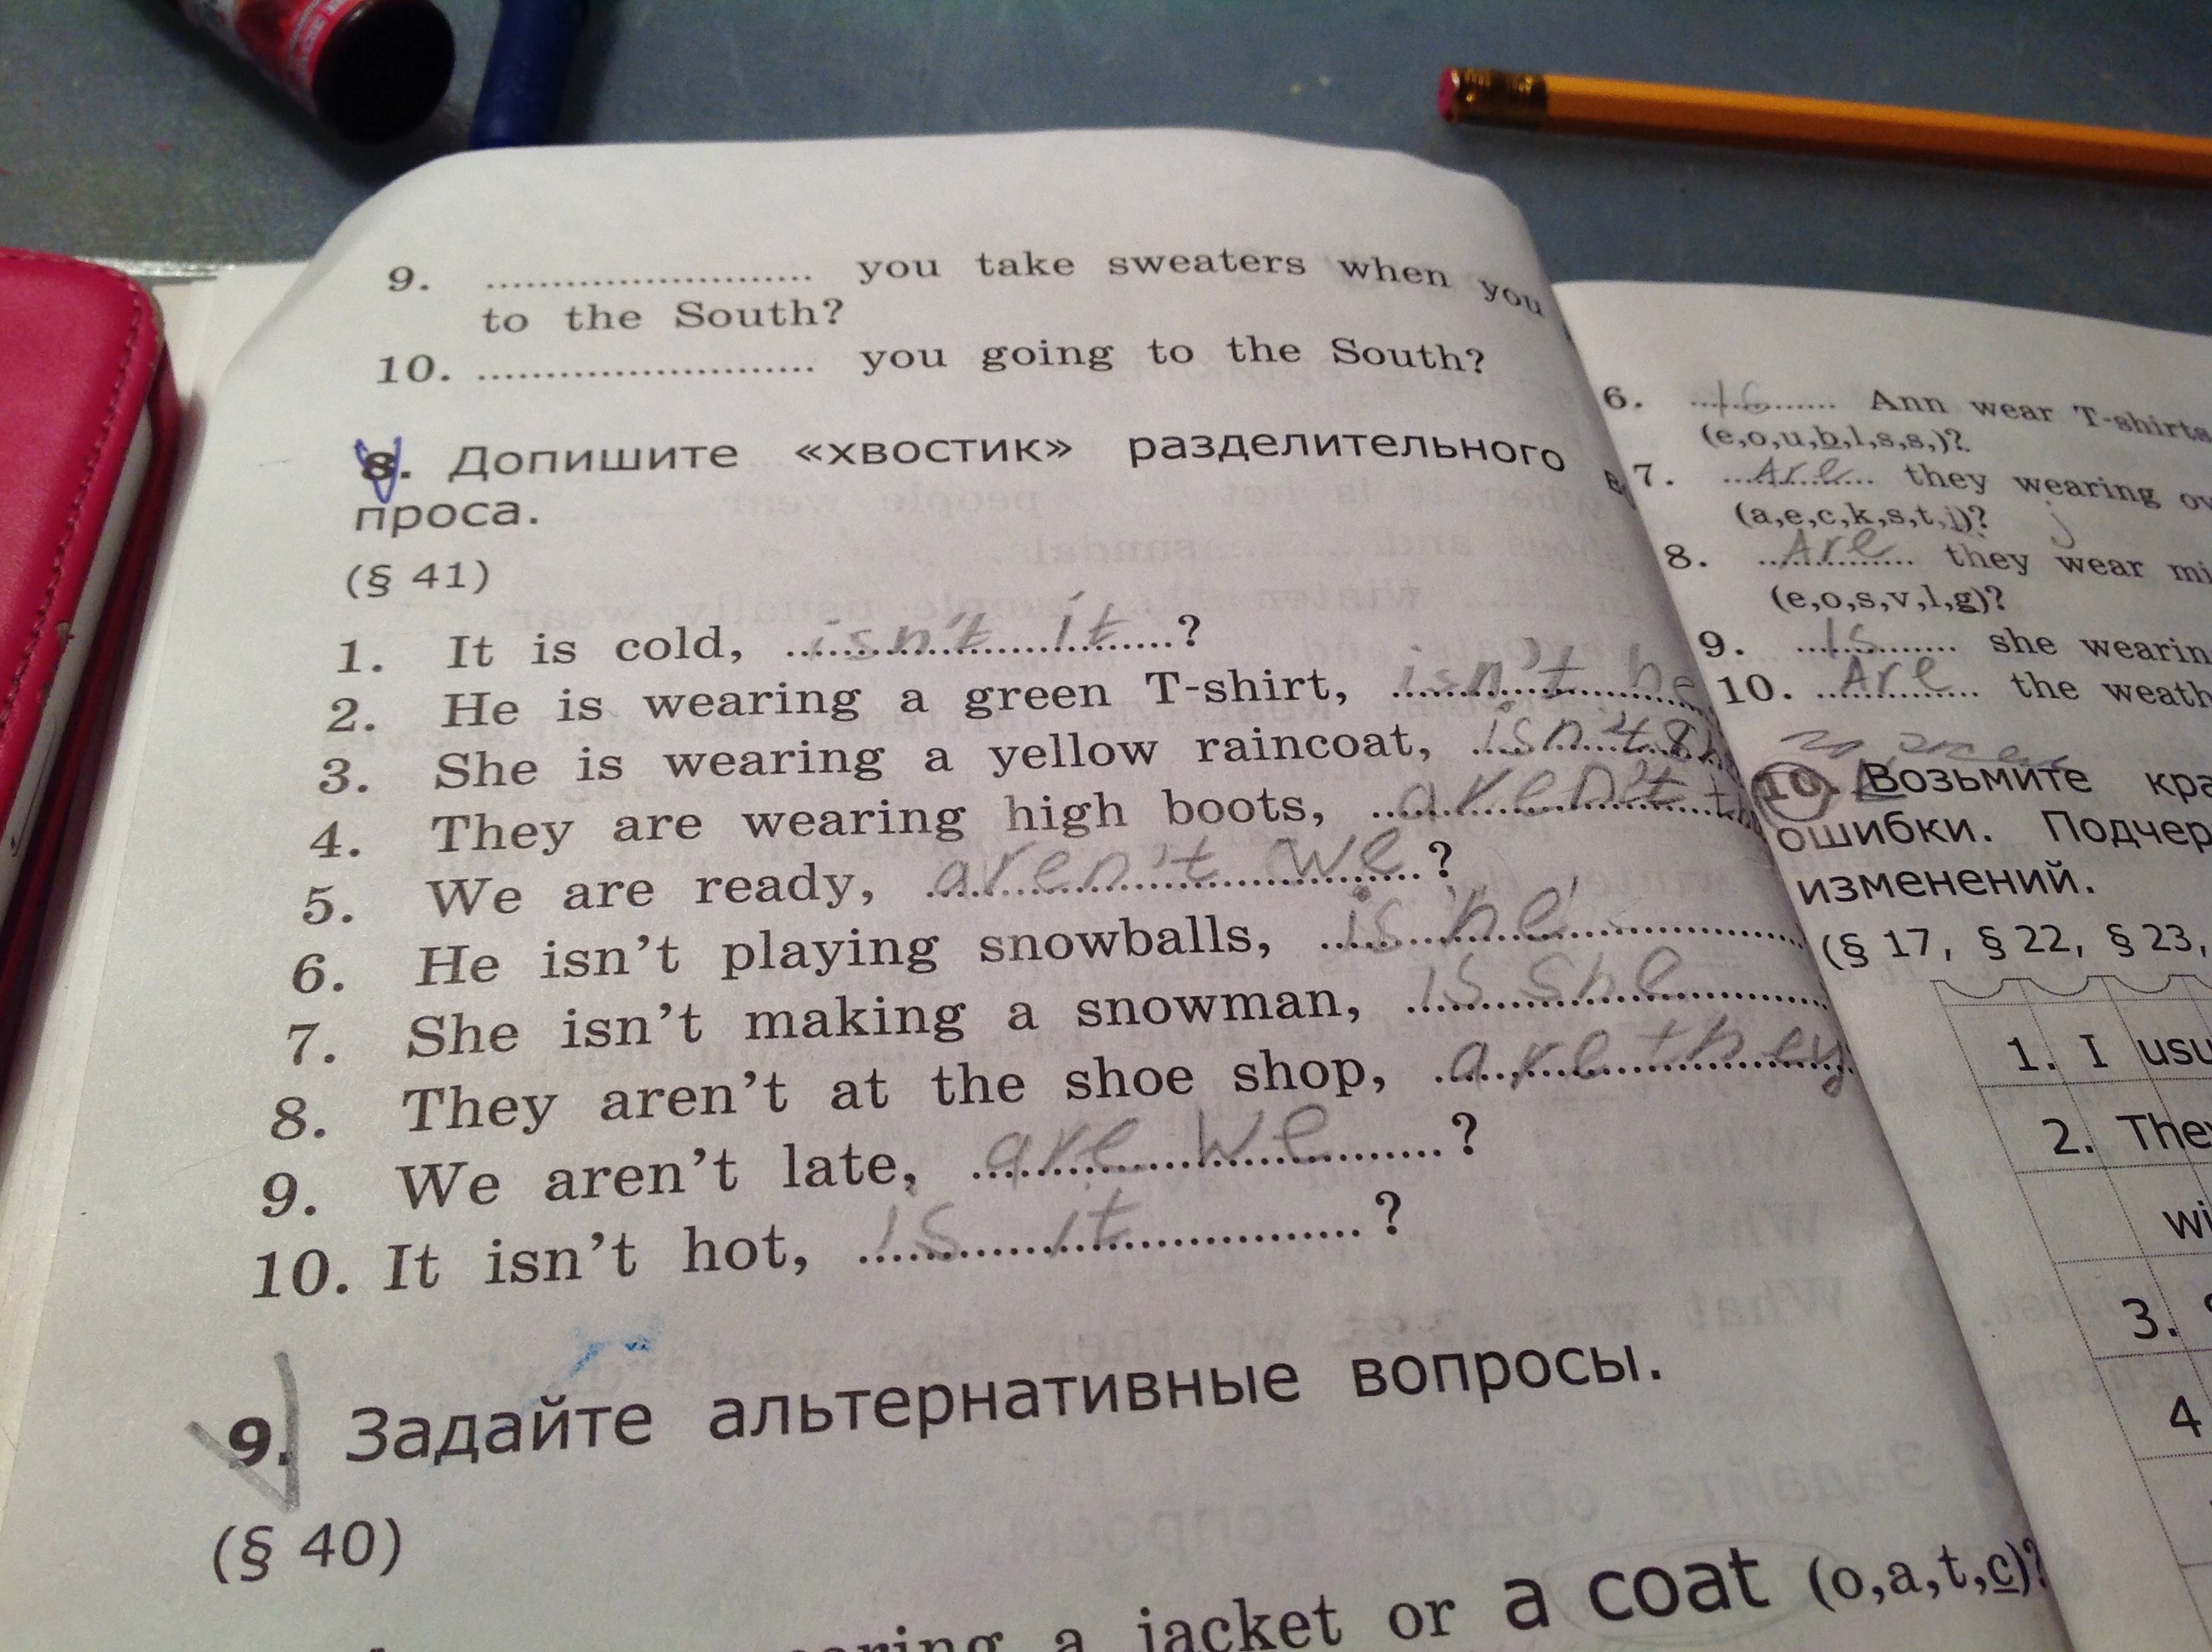 9. ........................ you take sweaters when you
to the South?
10. ......................... you going to the South?
8. Допишите «хвостик» разделительного
проса.
(§ 41)
1. It is cold, isn't it ?
2. He is wearing a green T-shirt, isn't he
3. She is wearing a yellow raincoat, isn't sh
4. They are wearing high boots, aren't t
5. We are ready, aren't we ?
6. He isn't playing snowballs, is he
7. She isn't making a snowman, is she
8. They aren't at the shoe shop, are they
9. We aren't late, are we ?
10. It isn't hot, is it ?
9. Задайте альтернативные вопросы.
(§ 40)
a jacket or a coat (o,a,t,c)?
6. Is Ann wear T-shirts
(e,o,u,b,l,s,s,)?
7. Are they wearing ov
(a,e,c,k,s,t,j)? j
8. Are they wear mi
(e,o,s,v,l,g)?
9. Is she wearin
10. Are the weath
10. Возьмите кра
ошибки. Подчер
изменений.
(§ 17, § 22, § 23,
1. I usu
2. They
wi
3.
4